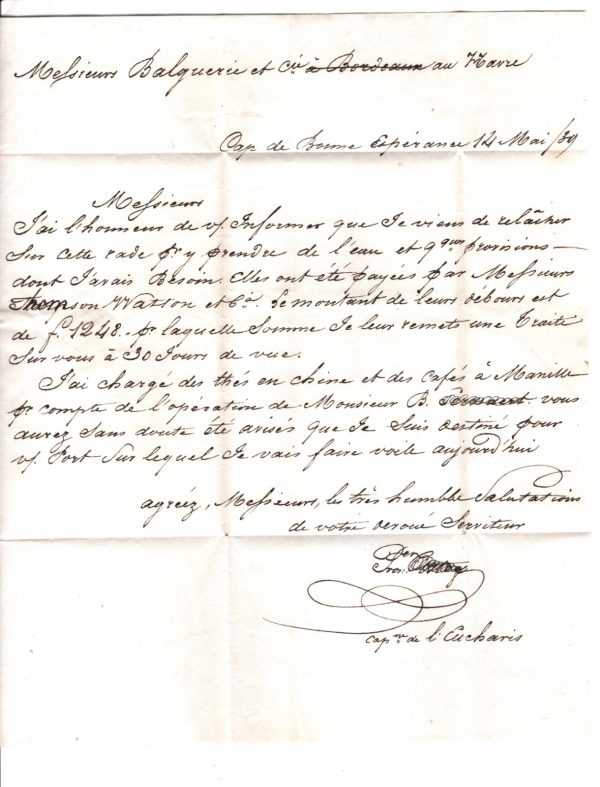 Messieurs Balguerie et Cie à Bordeaux au Havre
Cap de Bonne Espérance 14 Mai /39
Messieurs
J'ai l'honneur de v/. Informer que Je viens de relâcher
Sur cette rade pr. y prendre de l'eau et qques provisions —
dont J'avais Besoin. Elles ont été payées par Messieurs
Thomson Watson et Co. Le montant de leurs débours est
de f. 1248. pr laquelle Somme Je leur remets une Traite
Sur vous à 30 Jours de vue.
J'ai chargé des thés en chine et des cafés à Manille
pr compte de l'opération de Monsieur B. vous
aurez sans doute été avisés que Je Suis destiné pour
v/. Port Sur lequel Je vais faire voile aujourd'hui
agréez, Messieurs, les très humble Salutations
de votre dévoué Serviteur
capne de l'Eucharis